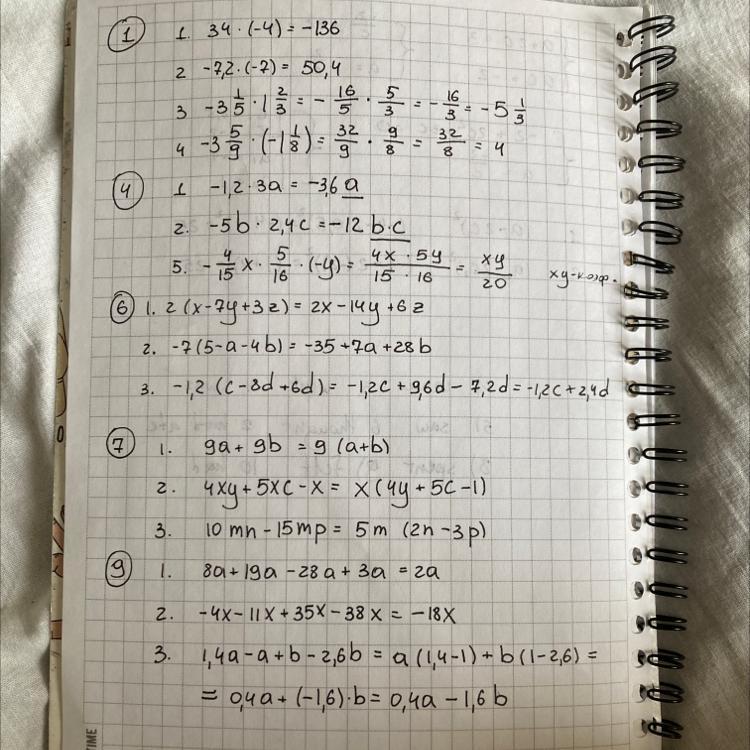 1 1. 34 · (-4) = -136
2 -7,2 · (-7) = 50,4
3 -3 1/5 · 1 2/3 = - 16/5 · 5/3 = - 16/3 = -5 1/3
4 -3 5/9 · (-1 1/8) = 32/9 · 9/8 = 32/8 = 4
4 1 -1,2 · 3a = -3,6 a
2. -5b · 2,4c = -12 b·c
5. - 4/15 x · 5/16 · (-y) = 4x · 5y / 15 · 16 = xy/20 xy-коэф.
6 1. 2 (x-7y+3z) = 2x-14y+6z
2. -7(5-a-4b) = -35+7a+28b
3. -1,2 (c-8d+6d) = -1,2c+9,6d-7,2d = -1,2c+2,4d
7 1. 9a+9b = 9 (a+b)
2. 4xy+5xc-x = x(4y+5c-1)
3. 10mn-15mp = 5m (2n-3p)
9 1. 8a+19a-28a+3a = 2a
2. -4x-11x+35x-38x = -18x
3. 1,4a-a+b-2,6b = a(1,4-1)+b(1-2,6) =
= 0,4a+(-1,6)·b = 0,4a-1,6b
TIME